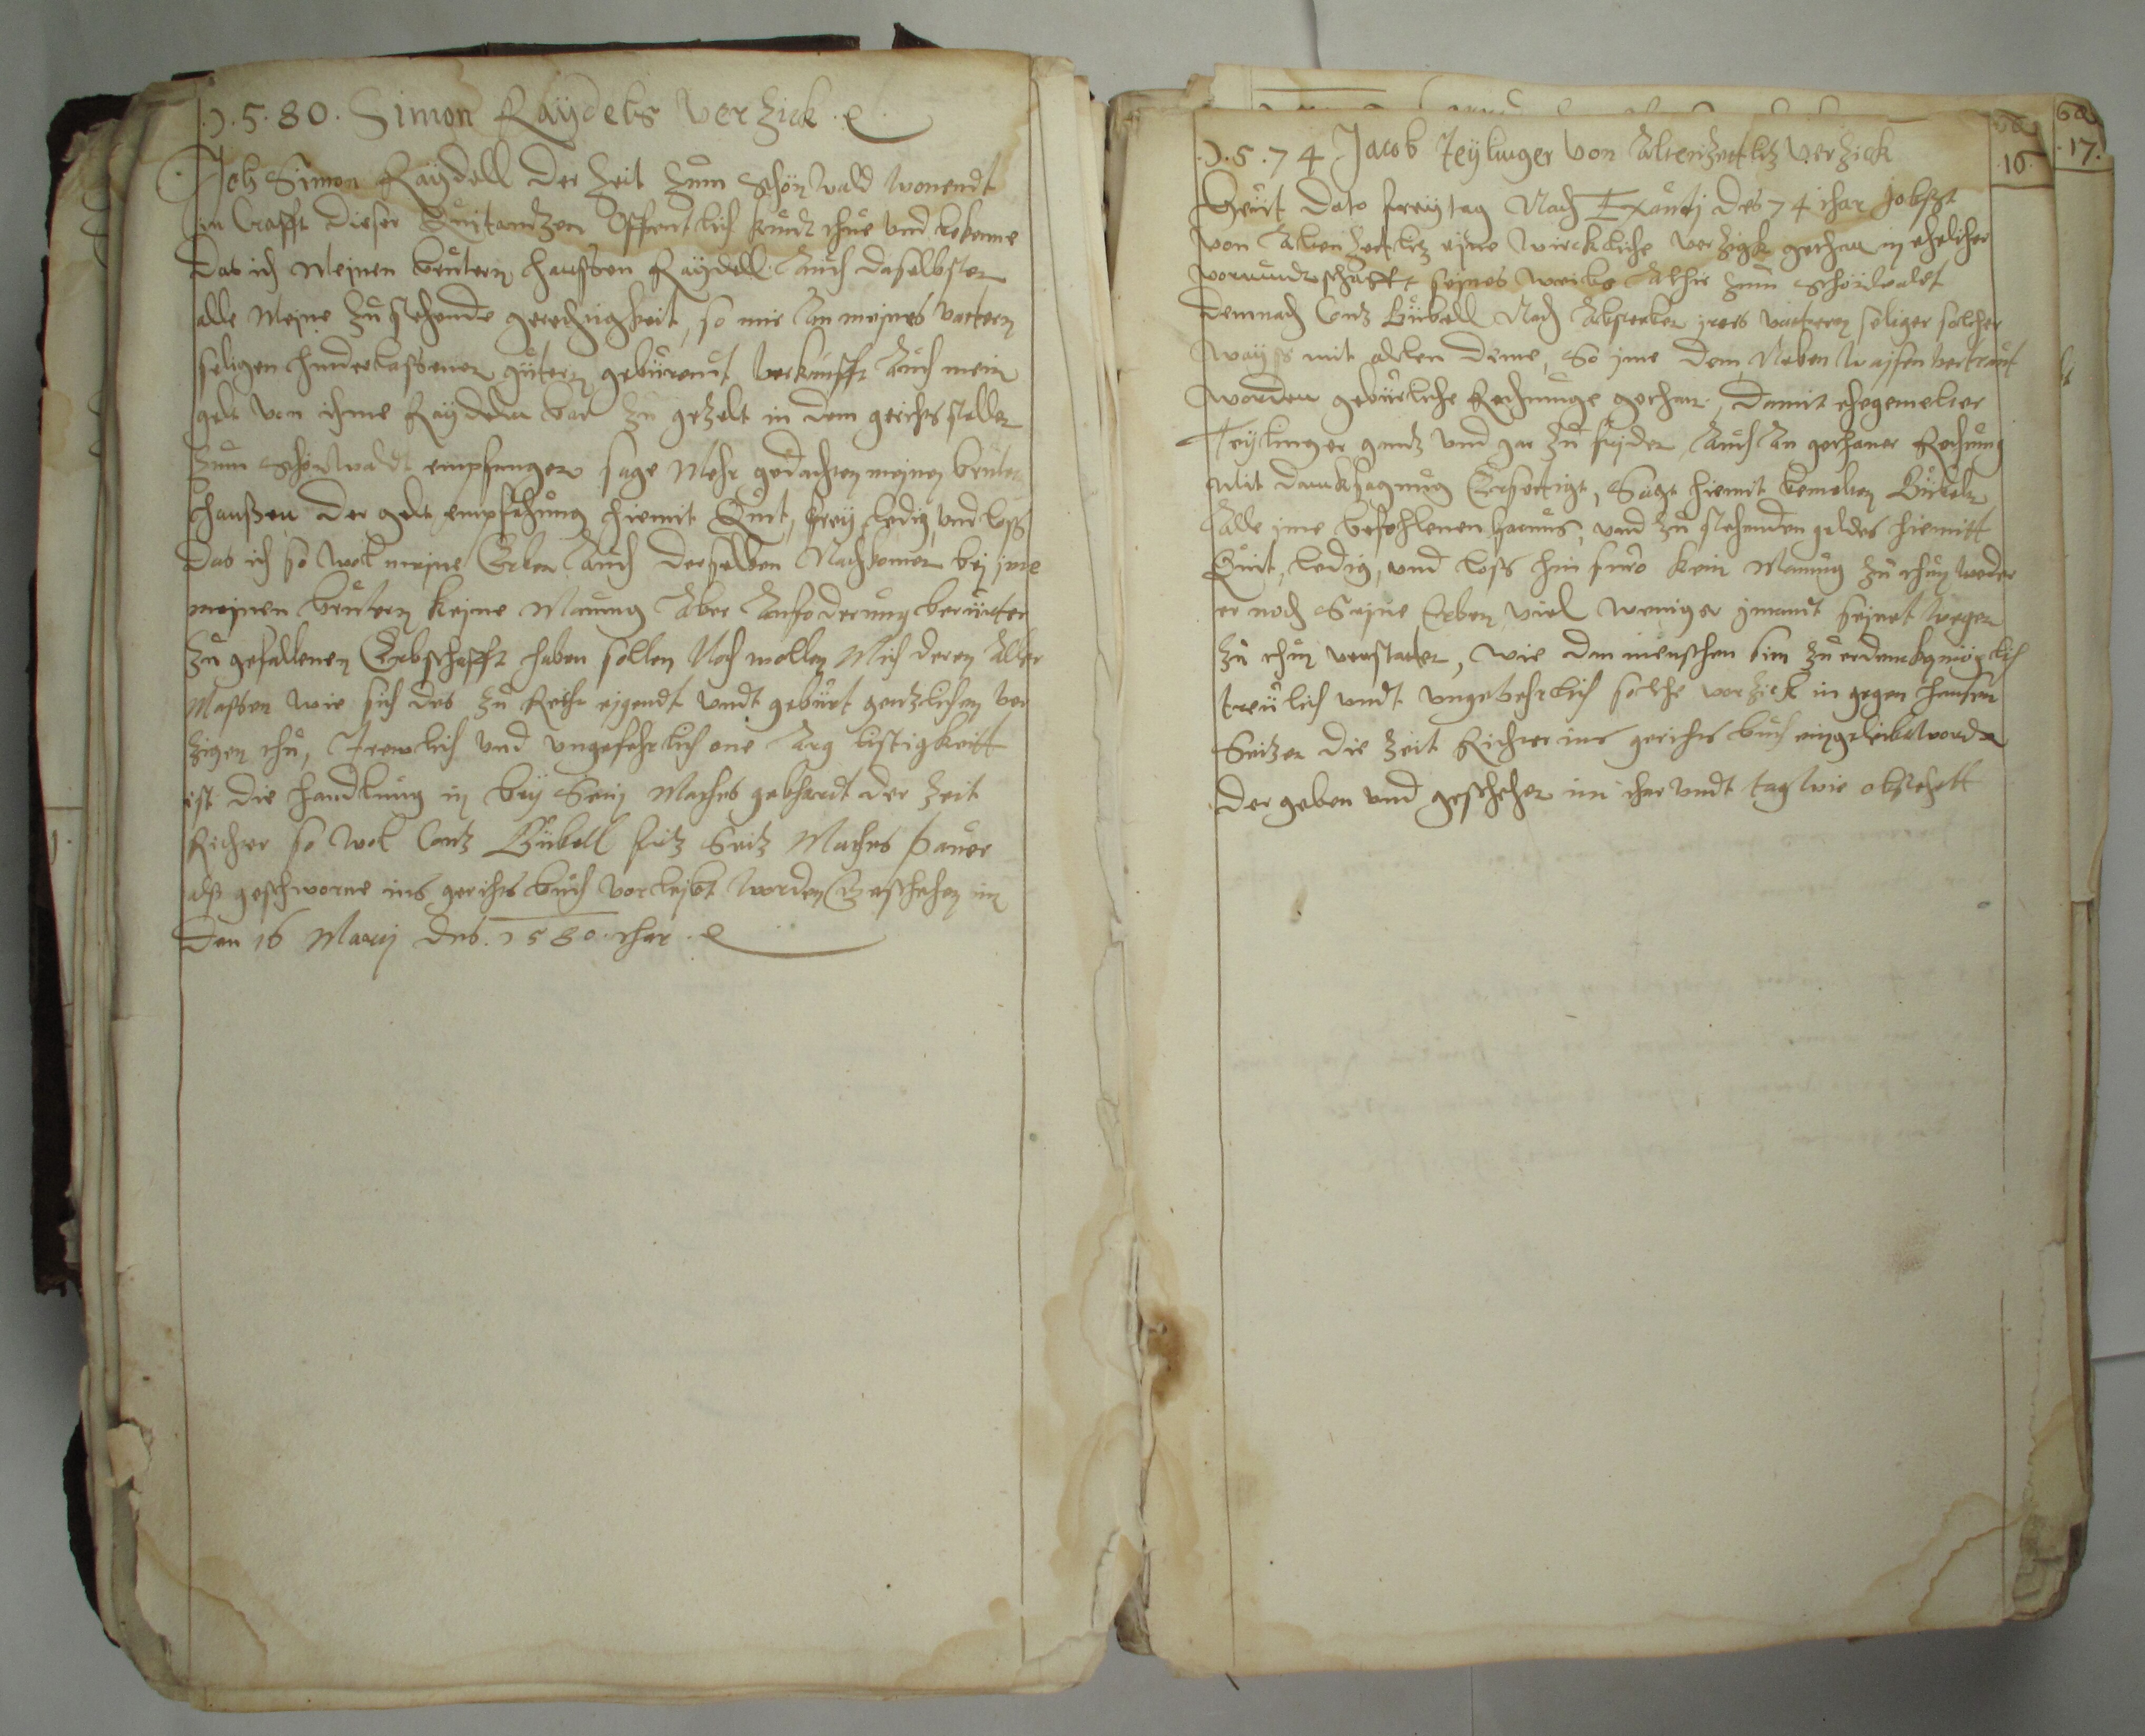 .1.5.80. Simon Raÿdels verzick
Ich Simon Raÿdell der Zeit zum Schönwald wonendt
in Crafft dieser Quitantzen Offentlich kundt thue und bekenne
das ich Meinen brutern Hanssen Raÿdell Auch daselbsten
alle Meine zu stehende gerechtigkeit, so mir an meines vattern
seligen hinderlassenen gütern gebürent verkaufft Auch mein
gelt von ihme Raÿdeln bar zu gezelt in dem gerichts stelle
zum Schönwaldt empfangen sage Mehr gedachten meinen bruter
Hanßen der gelt empfahung hiemit Quit, freÿ ledig und loß
das ich so wol meine Erben Auch derselben Nachkomen beÿ ime
meinen brutern keine Manung Aber Anfoderung berürter
zu gefallenen Erbschafft haben sollen Noch wollen Mich deren Aller
Massen wie sich des zu Recht eigendt undt gebürt gentzlichen ver
zigen thu, Trewlich und ungefehrlich one Arg listigkeitt
ist die handlung in beÿ Sein Mathes gebhardt der Zeit
Richter so wol Contz Gübell fritz Seitz Mathes Paüer
alß geschworne ins gerichts buch vorleibt worden Geschehen im
Den 16 Marcij des .1580. ihar
.1.5.74 Jacob Teÿlinger von Altenzettlitz verzick
16.
17.
Heüt Dato freÿtag Nach Exaudj des 74 ihar
von Altenzettlitz eine wirckliche verzigk gethan in ehelicher
vormundtschafft seines weibs Alhie zum Schönwaldt
demnach Contz Gübell Nach Absterben ires vattern seliger solcher
waÿß mit allen deme, So ime dem Neben waissen vertraut
worden gebürliche Rechnunge gethan, Damit ehegemelter
Teÿlinger gantz und gar zu friden Auch An gethaner Rechnung
mit dancksagung, Sagt hiemit bemelten Gübeln
Alle ime befohlenen, und zu stehenden geldes hiemitt
Quit, ledig, und loß hin furo kein Manung zu thun weder
er noch Seine Erben viel weniger imandt seinet wegen
zu thun verstatten, wie dan menschen sin zu erdencken möglich
treülich undt ungevehrlich solche verzick in gegen Hansen
Seitzen die Zeit Richter ins gerichts buch eingeleibt worden
Der geben und geschehen im ihar undt tag wie obstehett